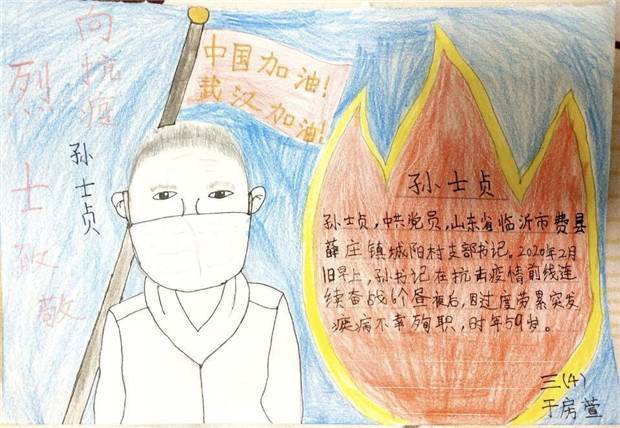 向抗疫
烈士致敬
孙士贞
中国加油!
武汉加油!
孙士贞
孙士贞,中共党员,山东省临沂市费县
薛庄镇城阳村支部书记。2020年2月
1日早上,孙书记在抗击疫情前线连
续奋战6个昼夜后,因过度劳累突发
疾病不幸殉职,时年59岁。
三(4)
于房萱